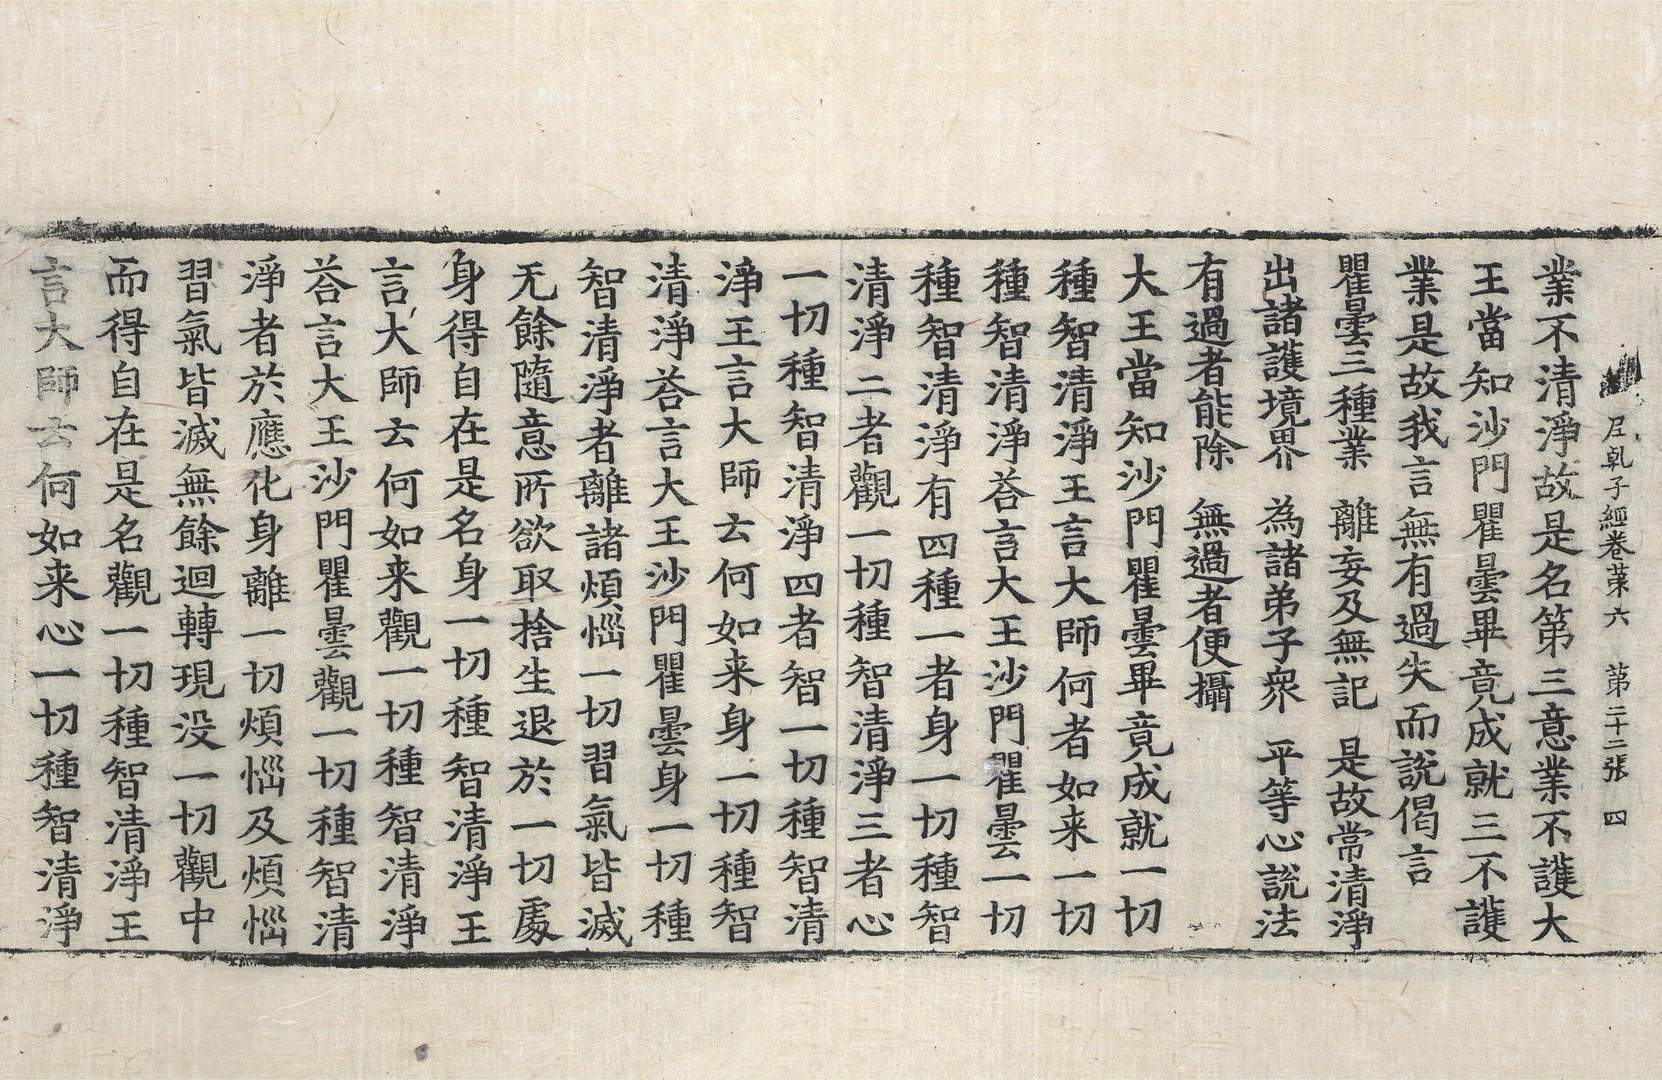 尼乹子經卷苐六　苐二十二張　四
業不清淨故是名第三意業不護大
王當知沙門瞿曇畢竟成就三不護
業是故我言無有過失而說偈言
瞿曇三種業　離妄及無記　是故常清淨
出諸護境界　為諸弟子衆　平等心說法
有過者能除　無過者便攝
大王當知沙門瞿曇畢竟成就一切
種智清淨王言大師何者如来一切
種智清淨荅言大王沙門瞿曇一切
種智清淨有四種一者身一切種智
清淨二者觀一切種智清淨三者心
一切種智清淨四者智一切種智清
淨王言大師云何如来身一切種智
清淨荅言大王沙門瞿曇身一切種
智清淨者離諸煩惱一切習氣皆滅
无餘隨意所欲取捨生退於一切處
身得自在是名身一切種智清淨王
言大師云何如来觀一切種智清淨
荅言大王沙門瞿曇觀一切種智清
淨者於應化身離一切煩惱及煩惱
習氣皆滅無餘迴轉現没一切觀中
而得自在是名觀一切種智清淨王
言大師云何如来心一切種智清淨